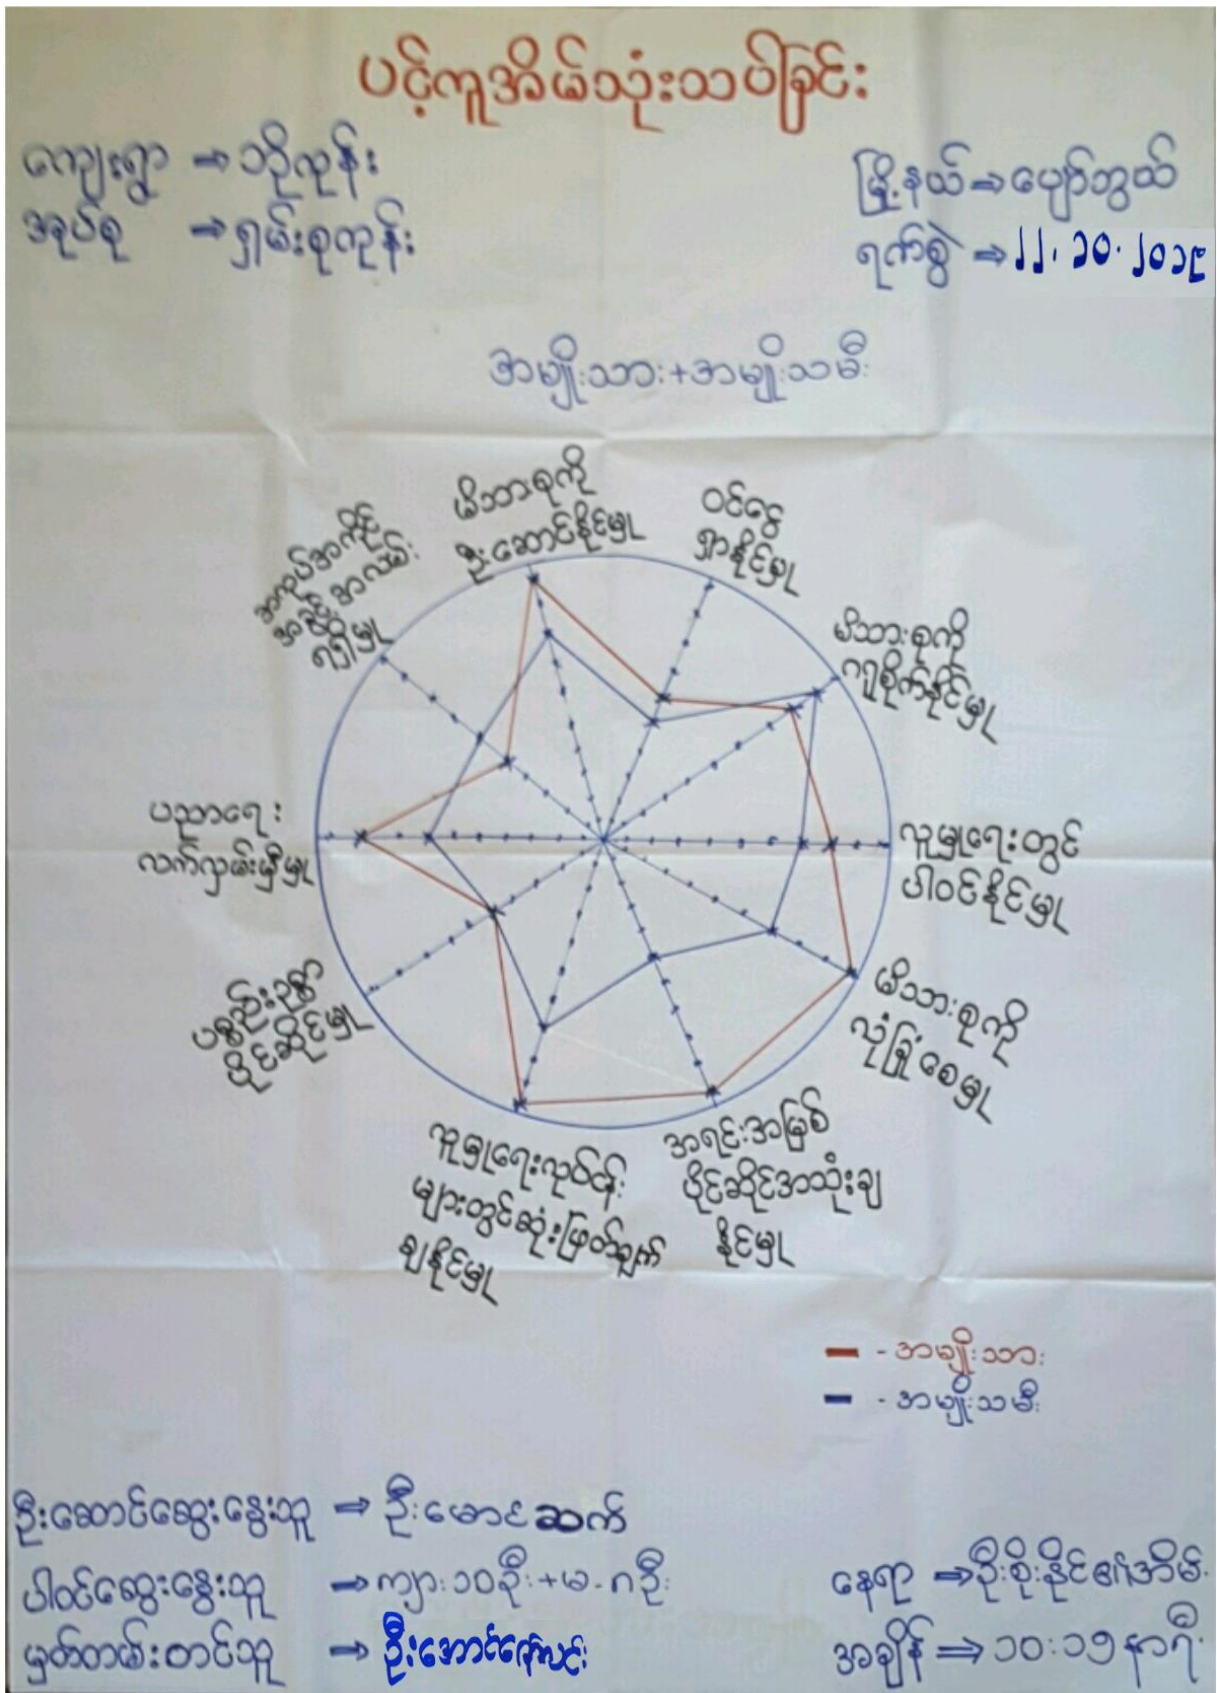 ပင့်ကူအိမ်သုံးသပ်ခြင်း
ကျေးရွာ → ဘိုကုန်း
အုပ်စု → ရှမ်းစုကုန်း
မြို့နယ် → ပျော်ဘွယ်
ရက်စွဲ → ၂၂.၁၀.၂၀၁၉
အမျိုးသား+အမျိုးသမီး
မိသားစုကို
ဦးဆောင်နိုင်မှု
ဝင်ငွေ
ရှာနိုင်မှု
မိသားစုကို
ဂရုစိုက်နိုင်မှု
လူမှုရေးတွင်
ပါဝင်နိုင်မှု
မိသားစုကို
လုံခြုံစေမှု
အရင်းအမြစ်
ပိုင်ဆိုင်အသုံးချ
နိုင်မှု
လူမှုရေးလုပ်ငန်း
များတွင်ဆုံးဖြတ်ချက်
ချနိုင်မှု
ပစ္စည်းဥစ္စာ
ပိုင်ဆိုင်မှု
ပညာရေး
လက်လှမ်းမှီမှု
အလုပ်အကိုင်
အခွင့်အလမ်း
ရရှိမှု
- အမျိုးသား
- အမျိုးသမီး
ဦးဆောင်ဆွေးနွေးသူ → ဦးမောင်ဆက်
ပါဝင်ဆွေးနွေးသူ → ကျား ၁၀ဦး+မ-၈ဦး
မှတ်တမ်းတင်သူ → ဦးအောင်
နေရာ → ဦးစိုးနိုင်၏အိမ်
အချိန် → ၁၀:၁၅နာရီ